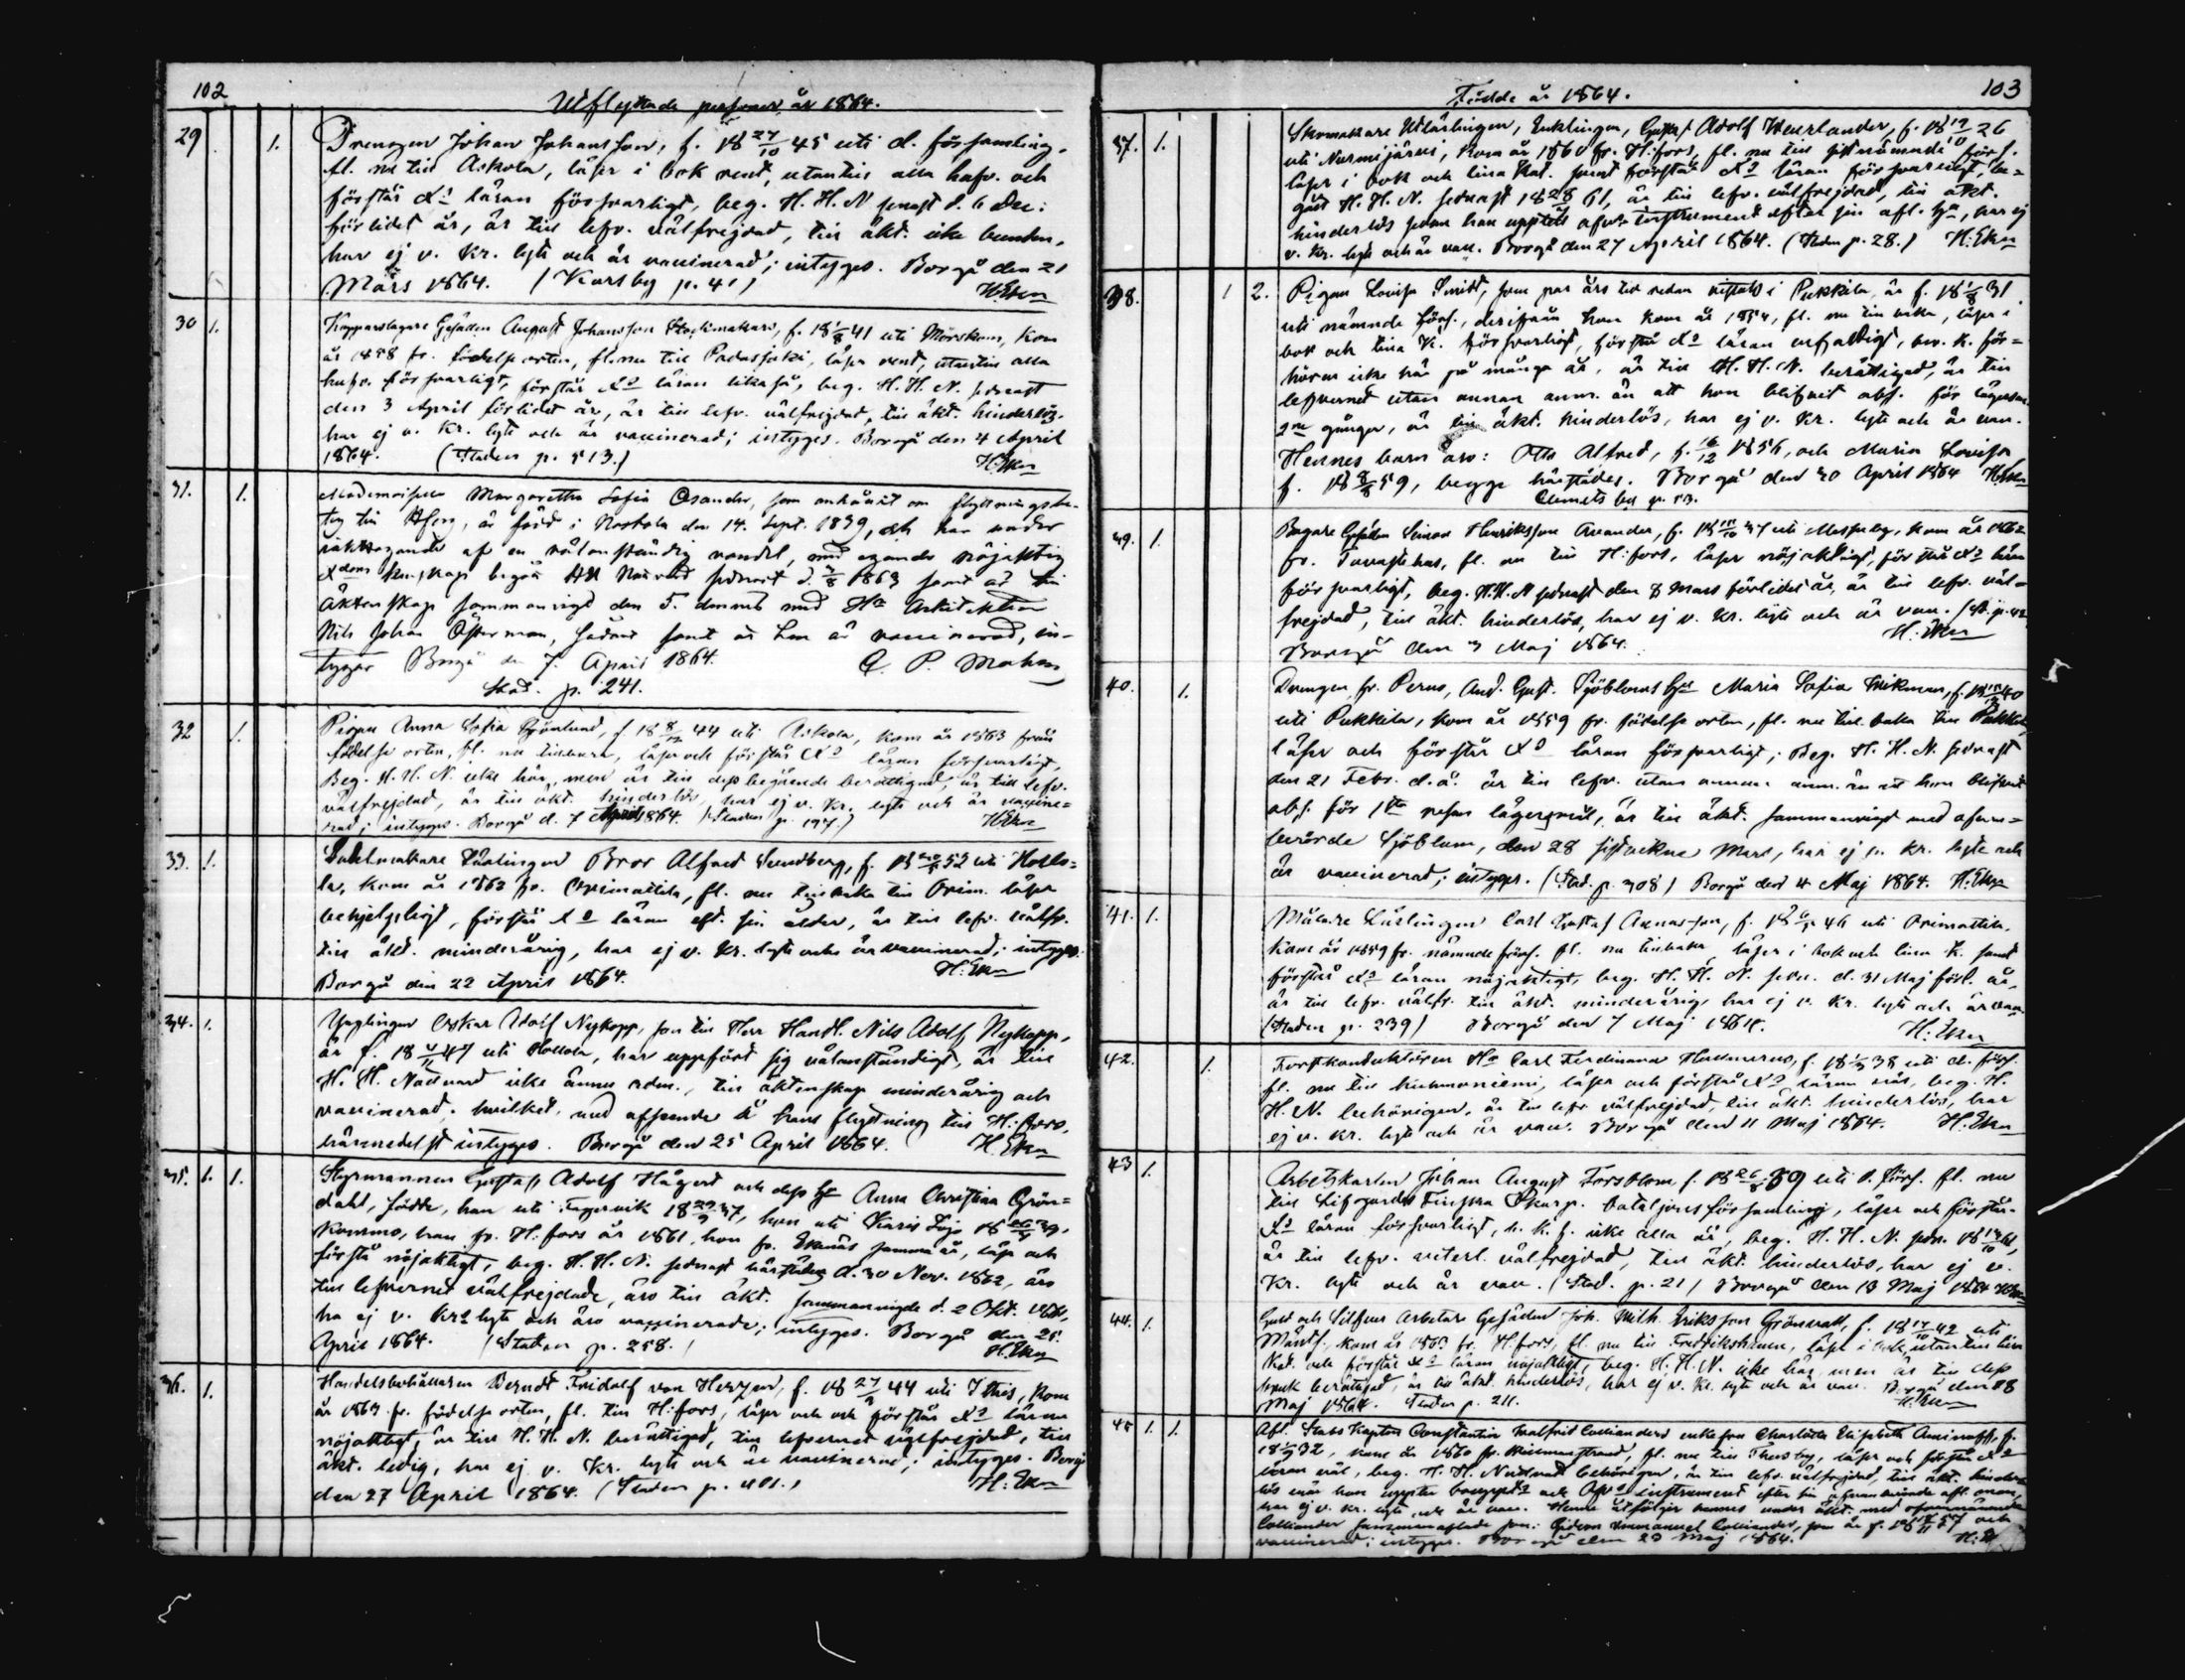 102
Utflyttade personer år 1864.
29 1. Drengen Johan Johansson, f. 18 27/10 45 uti d. församling,
fl. nu till Askola, läser i bok rent, utantill alla hufv. och
förstår Xi läran försvarligt, beg. H. H. N senast d. 6 Dec:
förlidet år, är till lefv. välfrejdad, till äkt. icke bunden,
har ej v. Kr. lyte och är vaccinerad; intyges. Borgå den 21
Mars 1864. (Karsby p. 41) H:Ekn
30 1. Kopparslagare Gesällen August Johansson f. 18 41 uti Mörskom, kom
år 1858 fr. födelse orten, fl. nu till Padasjoki, läser rent, utantill alla
hufv. försvarligt, förstår Xs läran likaså, beg. H. H. N. senast
den 3 April förlidet år, är till lefv. välfrejdad, till äkt. hinderlös,
har ej v. Kr. lyte och är vaccinerad; intyges. Borgå den 4 April
1864. (Staden p. 513.) H:Ekn
31. 1. Mademoisellen Margaretha Sofia Asander, som anhållit om flyttningsbe-
tyg till H:fors, är född i den 14. Sept. 1839, och har under
iakttagande af en välanständig vandel, med egande nöjaktig
Xdoms kunskap begått HH Nattvard senast d. 1863 samt är till
äktenskap sammanvigd den 5. dennes med Hr Arkitekten
Nils Johan Österman, hvarförutan hon är vaccinerad, in-
tygar Borgå den 7. April 1864.
Stad. p. 241.
32 1. Pigan Anna Sofia f 18 44 uti Askola, kom år 1863 från
födelse orten, fl. nu tillbaka, läser och förstår Xs läran försvarligt,
Beg. H. H. N. icke här, men är till dess begående berättigad, är till lefv.
välfrejdad, är till äkt. hinderlös, har ej v. Kr. lyte och är vaccine-
rad; intyges. Borgå d. 7 April 1864. (Staden p. 197.) H:Ekn
33. 1. Sadelmakare Lärlingen Bror Alfred Sundberg, f. 18 52 uti Hollo-
la, kom år 1862 fr. Orimattila, fl. nu tillbaka till Orim. läser
behjelpligt, förstår Xs läran eft. sin ålder, är till lefv. välfr.
till äkt. minderårig, har ej v. Kr. lyte och är vaccinerad; intyges.
Borgå den 22 April 1864. H:Ekn
34. 1. Ynglingen Oskar Adolf Nykopp, son till Herr Handl. Nils Adolf Nykopp,
är f. 18 47 uti Hollola, har uppfört sig välanständigt, är till
H. H. Nattvard icke ännu adm., till äktenskap minderårig och
vaccinerad; hvilket, med afseende å hans flyttning till H:fors,
härmedelst intyges. Borgå den 25 April 1864. H:Ekn
35. 1. 1. Styrmannen Gustaf Adolf Hågerd och dess Hu Anna Christina Grön-
dahl, födde, han uti Fagervik 18 29/9 37, hon uti Karis Lojo 18 39,
komne, han fr. H:fors år 1861, hon fr. Ekenäs samma år, läser och
förstå nöjaktigt, beg. H. H. N. senast härstädes d. 30 Nov. 1862, äro
till lefvernet välfrejdade, äro till äkt. sammanvigde d. 2 Okt.
ha ej v. Krs lyte och äro vaccinerade; intyges. Borgå den 25.
April 1864. (Staden p. 258.) H:Ekn
36. 1. Handelsbokhållaren Berndt Fridolf von Hertzen, f. 18 27 44 uti Ithis, kom
år 1863 fr. födelse orten, fl. till H:fors, läser och förstår Xs läran
nöjaktigt, är till H. H. N. berättigad, till lefvernet välfrejdad, till
äkt. ledig, har ej v. Kr. lyte och är vaccinerad; intyges. Borgå
den 27 April 1864. (Staden p. H:Ekn
Födde år 1864. 103
37. 1. Skomakare Utlärlingen, Enklingen, Gustaf Adolf Wenrlander, f. 18 26
uti Nurmijärvi, kom år 1860 fr. H:fors, fl. nu till sistnämnde förs.
läser i bok och lilla Kat. samt förstår Xs läran försvarligt, be-
gått H. H. N. senast 18 28 61, är till lefv. välfrejdad, till äkt.
hinderlös sedan han upptett afv. instrument efter sin afl. Hu, har ej
v. Kr. lyte och är vacc. Borgå den 27 April 1864. (Staden p. 28.) H:Ekn
38. 1 2. Pigan Lovisa Smidt, som par års tid redan vistats i Pukkila, är f. 18 31
uti nämnde förs., derifrån hon kom år 1854, fl. nu tillbaka, läser i
bok och lilla K. försvarligt, förstår Xs läran enfaldigt, bev. k. för-
hören icke här på många år, är till H. H. N. berättigad, är till
lefvernet utan annan anm. än att hon blifvit abs. för lägersm.
2ne gånger, är till äkt. hinderlös, har ej v. Kr. lyte och är vacc.
Hennes barn äro: Otto Alfred, f. 16/12 1856, och Maria Lovisa
f. 18 59, begge härstädes. Borgå den 30 April 1864 H:Ekn
Clemets by p. 53.
39. 1. Bagare Gesällen Simon Henriksson Avander, f. 18 37 uti Messuby, kom år 1862
fr. Tavastehus, fl. nu till H:fors, läser nöjaktigt, förstår Xs läran
försvarligt, beg. H.H.N senast den 8 Mars förlidet år, är till lefv. väl-
frejdad, till äkt. hinderlös, har ej v. Kr. lyte och är vacc. (St. p. 42
Borgå den 3 Maj 1864. H:Ekn
40. 1. Drengen fr. Perno, And. Gust. Sjöbloms Hu Maria Sofia Wikman, f. 18 40
uti Pukkila, kom år 1859 fr. födelse orten, fl. nu tillbaka till Pukkila,
läser och förstår Xs läran försvarligt; Beg. H. H. N. senast
den 21 Febr. d. å. är till lefv. utan annan anm. än att hon blifvit
abs. för 1sta resan lägersmål, är till äkt. sammanvigd med ofvan-
berörde Sjöblom, den 28 sistvikne Mars, har ej v. Kr. lyte och
är vaccinerad; intyges. (Stad. p. 308) Borgå den 4 Maj 1864. H:Ekn
41. 1. Målare Lärlingen Carl Gustaf Annasson, f. 18 46 uti Orimattila,
kom år 1859 fr. nämnde förs. fl. nu tillbaka, läser i bok och lilla K. samt
förstår Xs läran nöjaktigt, beg. H. H. N. sen. d. 31 Maj förl. år,
är till lefv. välfr. till äkt. minderårig, har ej v. Kr. lyte och är vacc.
(Staden p. 239) Borgå den 7 Maj 1864. H:Ekn
42. 1. Forstkonduktören Hr Carl Ferdinand f. 18 38 uti d. förs.
fl. nu till läser och förstår Xs läran väl, beg. H.
H. N. behörigen, är till lefv. välfrejdad, till äkt. hinderlös, har
ej v. Kr. lyte och är vacc. Borgå den 11 Maj 1864. H:Ekn
43 1. Arbetskarlen Johan August Forsblom f. 18 26 39 uti d. förs. fl. nu
till Lifgardets Finska Skarp. Bataljons församling, läser och förstår
Xs läran försvarligt, b. k. f. icke alla år, beg. H. H. N. sen. 18
är till lefv. veterl. välfrejdad, till äkt. hinderlös, har ej v.
Kr. lyte och är vacc. (Stad. p. 21) Borgå den 13 Maj 1864 H:Ekn
44. 1. Guld och Silfver Arbetare Gesällen Joh. Wilh. Eriksson Grönvall, f. 18 42 uti
kom år 1863 fr. H:fors, fl. nu till Fredrikshamn, läser i bok, utantill lilla
Kat. och förstår Xs läran nöjaktigt, beg. H. H. N. icke här, men är till dess
bruk berättigad, är till äkt. hinderlös, har ej v. Kr. lyte och är vacc. Borgå den 18
Maj 1864. Staden p. 211. H:Ekn
45 1. 1. Afl. Stabs Kapten Constantin Colliander's enkefru Charlotta Elisabeth f.
18 32, kom år 1860 fr. Willmanstrand, fl. nu till Thusby, läser och förstår Xs
läran väl, beg. H. H. Nattvard behörigen, är till lefv. välfrejdad, till äkt. hinder-
lös när hon upptér och Afv.s instrument efter sin ofvannämnde afl. man,
har ej v. Kr. lyte och är vacc. Henne åtföljer hennes under äkt. med ofvannämnde
Colliander sammanaflade son: Gideon Emmanuel Colliander, som är f. 18 57 och
vaccinerad; intyges. Borgå den 23 Maj 1864. H:E